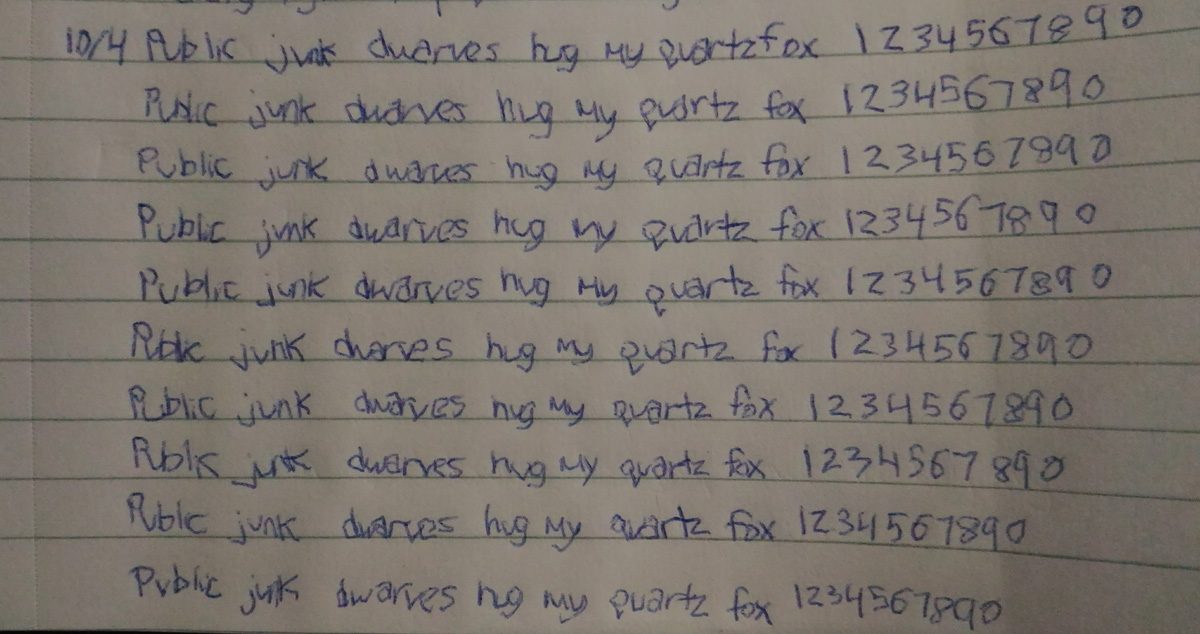 10/4 Public junk dwarves hug my quartz fox 1234567890
Public junk dwarves hug my quartz fox 1234567890
Public junk dwarves hug my quartz fox 1234567890
Public junk dwarves hug my quartz fox 1234567890
Public junk dwarves hug my quartz fox 1234567890
Public junk dwarves hug my quartz fox 1234567890
Public junk dwarves hug my quartz fox 1234567890
Public junk dwarves hug my quartz fox 1234567890
Public junk dwarves hug my quartz fox 1234567890
Public junk dwarves hug my quartz fox 1234567890